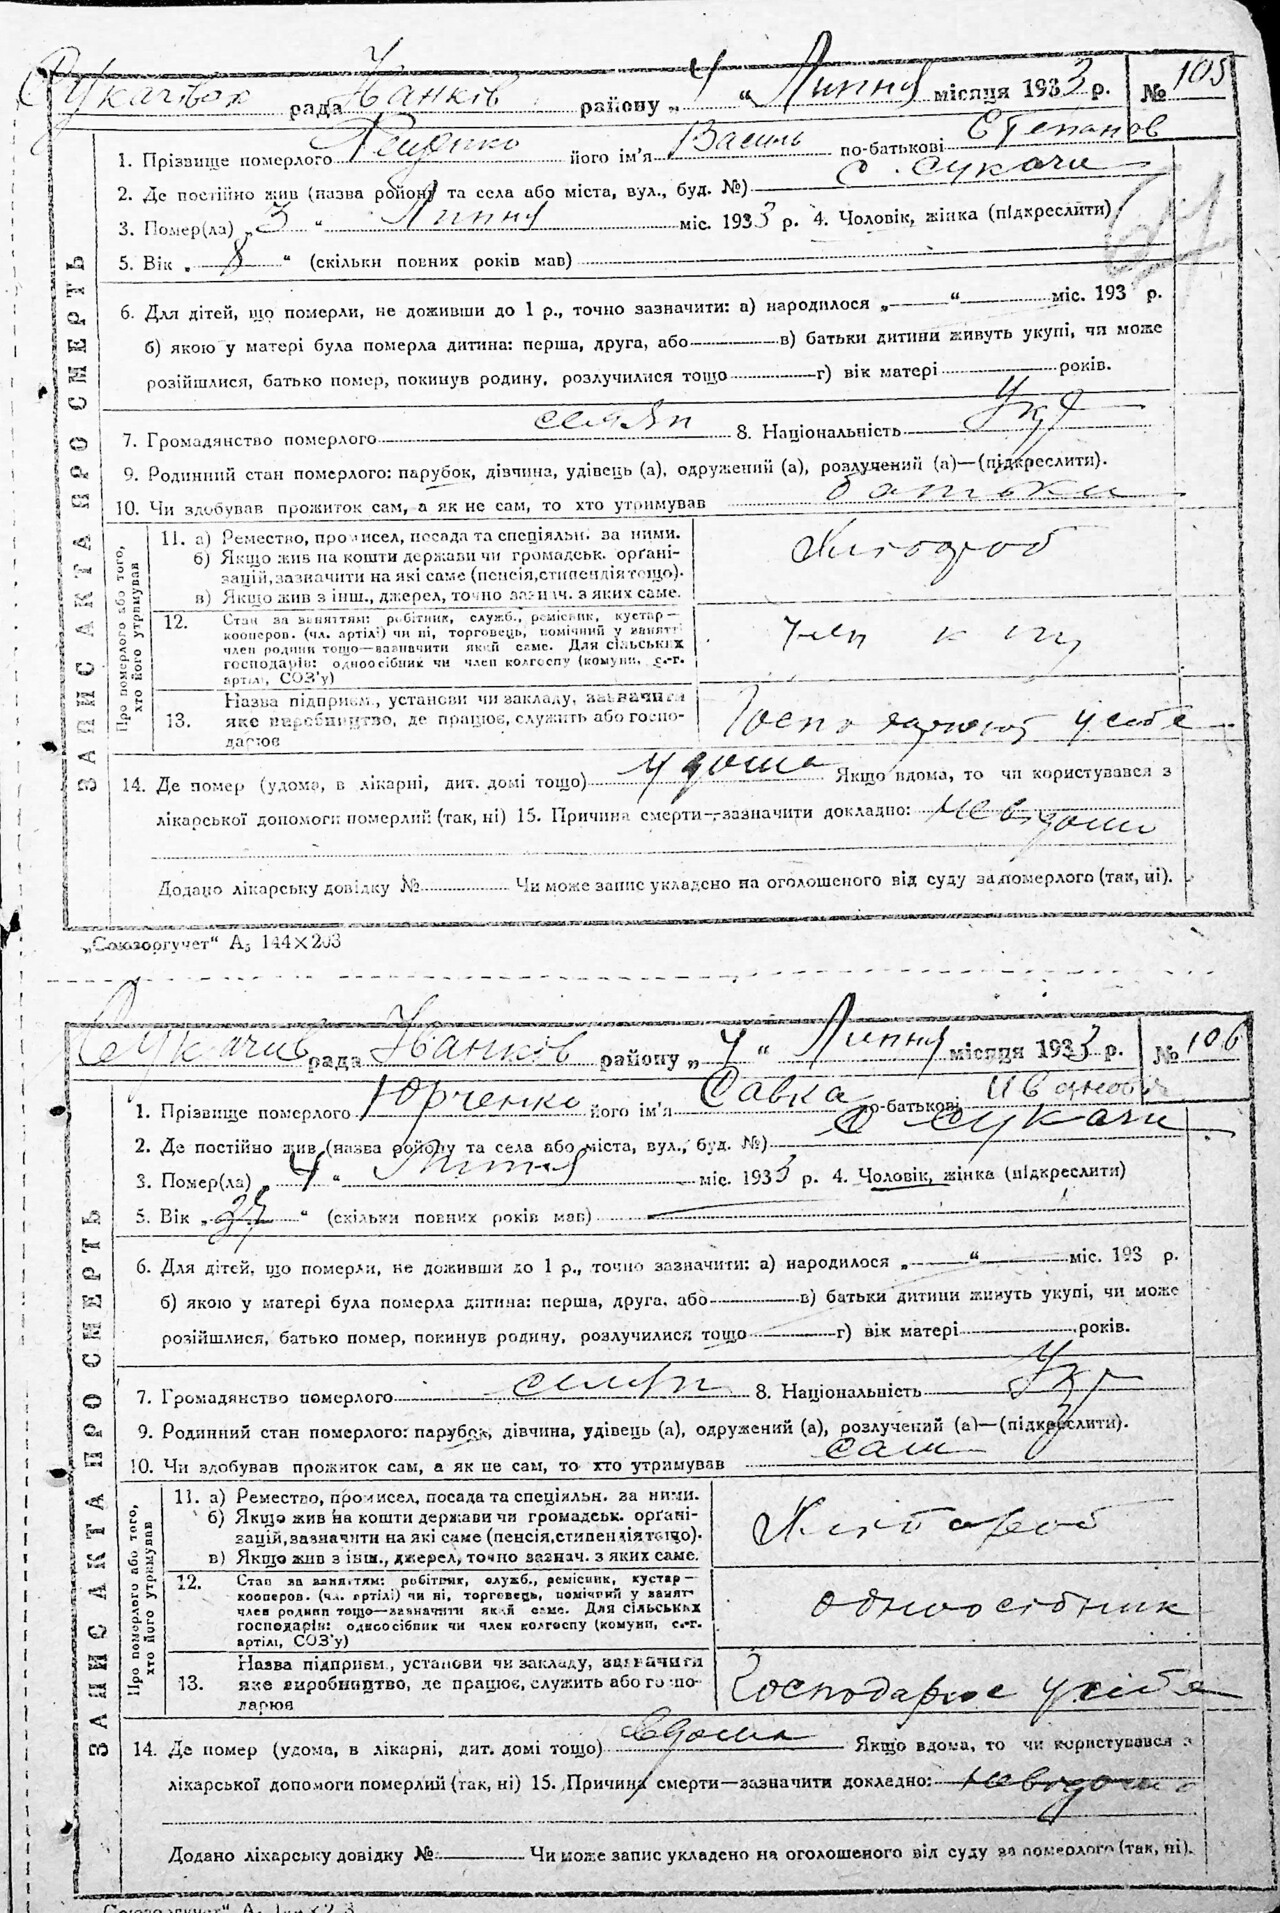 Сукачівськ рада Іванків району „4“ Липня місяця 1933 р. № 105
1. Прізвище померлого його ім'я Василь по-батькові Степанов
2. Де постійно жив (назва району та села або міста, вул., буд. №) с. Сукачи
3. Помер(ла) „3“ Липня міс. 1933 р. 4. Чоловік, жінка (підкреслити)
5. Вік „8“ (скільки повних років мав)
6. Для дітей, що померли, не доживши до 1 р., точно зазначити: а) народилося „ “ міс. 193 р.
б) якою у матері була померла дитина: перша, друга, або в) батьки дитини живуть укупі, чи може
розійшлися, батько помер, покинув родину, розлучилися тощо г) вік матері років.
7. Громадянство померлого селян 8. Національність Укр
9. Родинний стан померлого: парубок, дівчина, удівець (а), одружений (а), розлучений (а)—(підкреслити).
10. Чи здобував прожиток сам, а як не сам, то хто утримував батьки
ЗАПИС АКТА ПРО СМЕРТЬ
Про померлого або того, хто його утримував
11. а) Ремество, промисел, посада та спеціяльн. за ними.
б) Якщо жив на кошти держави чи громадськ. орґані-
зацій, зазначити на які саме (пенсія, стипендія тощо).
в) Якщо жив з інш., джерел, точно зазнач. з яких саме.
Хлібороб
12. Стан за заняттям: робітник, служб., ремісник, кустар—
кооперов. (чл. артілі) чи ні, торговець, помічний у занятті
член родини тощо—зазначити який саме. Для сільських
господарів: одноосібник чи член колгоспу (комуни, с.-г.
артілі, СОЗ'у)
13. Назва підприєм., установи чи закладу, зазначити
яке виробництво, де працює, служить або госпо-
дарює
у себе
14. Де помер (удома, в лікарні, дит. домі тощо) удома Якщо вдома, то чи користувався з
лікарської допомоги померлий (так, ні) 15. Причина смерти—зазначити докладно: невідомо
Додано лікарську довідку № Чи може запис укладено на оголошеного від суду за померлого (так, ні).
„Союзоргучет“ А5 144×203
Сукачів рада Іванков району „4“ Липня місяця 1933 р. № 106
1. Прізвище померлого Юрченко його ім'я Савка по-батькові Іванов
2. Де постійно жив (назва району та села або міста, вул., буд. №) с Сукачи
3. Помер(ла) „4“ Липня міс. 1933 р. 4. Чоловік, жінка (підкреслити)
5. Вік „ “ (скільки повних років мав)
6. Для дітей, що померли, не доживши до 1 р., точно зазначити: а) народилося „ “ міс. 193 р.
б) якою у матері була померла дитина: перша, друга, або в) батьки дитини живуть укупі, чи може
розійшлися, батько помер, покинув родину, розлучилися тощо г) вік матері років.
7. Громадянство померлого селян 8. Національність Укр
9. Родинний стан померлого: парубок, дівчина, удівець (а), одружений (а), розлучений (а)—(підкреслити).
10. Чи здобував прожиток сам, а як не сам, то хто утримував сам
ЗАПИС АКТА ПРО СМЕРТЬ
Про померлого або того, хто його утримував
11. а) Ремество, промисел, посада та спеціяльн. за ними.
б) Якщо жив на кошти держави чи громадськ. орґані-
зацій, зазначити на які саме (пенсія, стипендія тощо).
в) Якщо жив з інш., джерел, точно зазнач. з яких саме.
Хлібороб
12. Стан за заняттям: робітник, служб., ремісник, кустар—
кооперов. (чл. артілі) чи ні, торговець, помічний у занятт
член родини тощо—зазначити який саме. Для сільських
господарів: одноосібник чи член колгоспу (комуни, с.-г.
артілі, СОЗ'у)
одноосібник
13. Назва підприєм., установи чи закладу, зазначити
яке виробництво, де працює, служить або госпо-
дарює
Господарює у себе
14. Де помер (удома, в лікарні, дит. домі тощо) вдома Якщо вдома, то чи користувався з
лікарської допомоги померлий (так, ні) 15. Причина смерти—зазначити докладно: невідомо
Додано лікарську довідку № Чи може запис укладено на оголошеного від суду за померлого (так, ні).